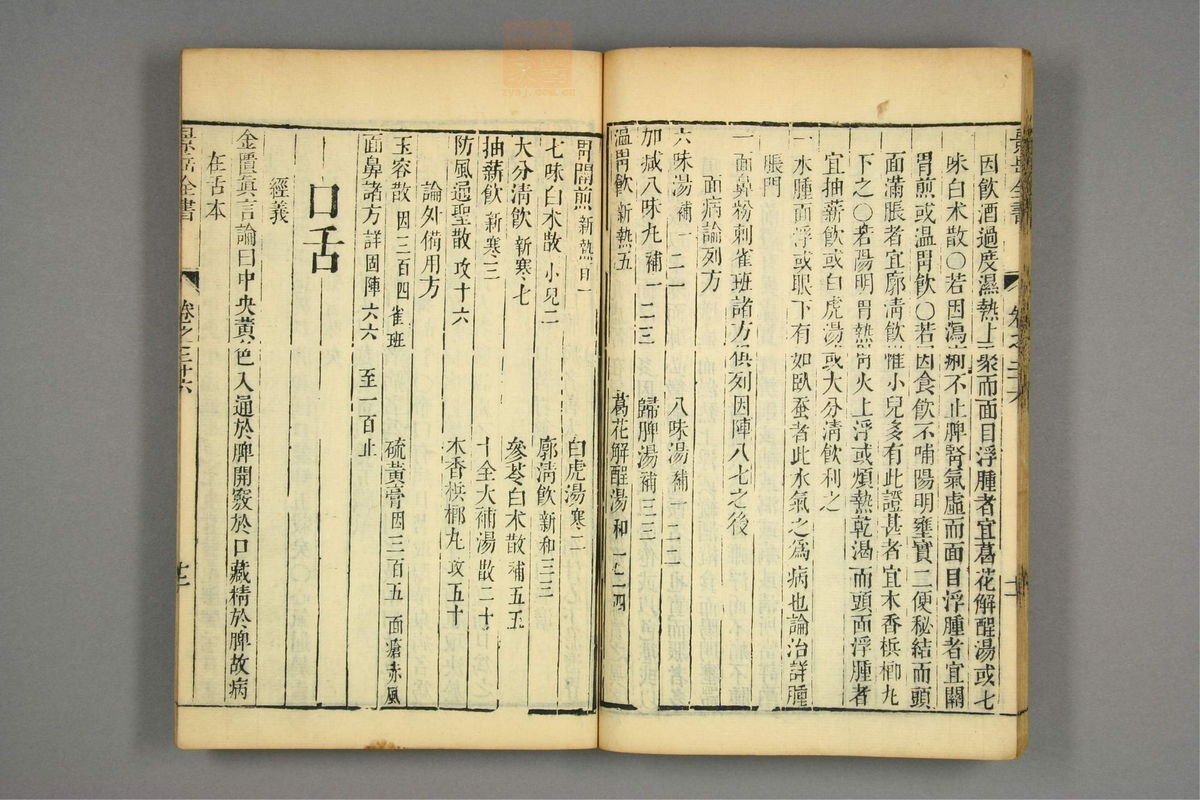 因飲酒過度濕熱上聚而面目浮腫者宜葛花解醒湯或七
味白术散○若因瀉痢不止脾腎氣虛而面目浮腫者宜胃關
胃煎或溫胃飲○若因食飲不哺陽明壅實二便秘結而頭
面滿脹者宜廓清飲惟小兒多有此證甚者宜木香檳榔丸
下之○若陽明胃熱胃火上浮或煩熱乾渴而頭面浮腫者
宜抽薪飲或白虎湯或大分清飲利之
一水腫面浮或眼下有如臥蚕者此水氣之為病也論治詳腫
脹門
一面鼻粉刺雀斑諸方俱列因陣八七之後
面病論列方
六味湯 補一二一 八味湯 補一二二
加减八味丸 補一二三 歸脾湯 補三二
溫胃飲 新熱五 葛花解醒湯 和一二四
胃關煎 新熱 白虎湯 寒二
七味白术散 小兒七 廓清飲 新和十三
大分清飲 新寒七 參苓白术散 補五五
抽薪飲 新寒三 十全大補湯 散二十
論外備用方
防風通聖散 攻十六 木香檳榔丸 攻五十
玉容散 因三百四 雀班 硫黃膏 因三百五 面瘡赤風
面鼻諸方 詳固陣六六 至一百止
口舌
經義
金匱眞言論曰中央黃色入通於脾開竅於口藏精於脾故病
在舌本
景岳全書 卷之三十六